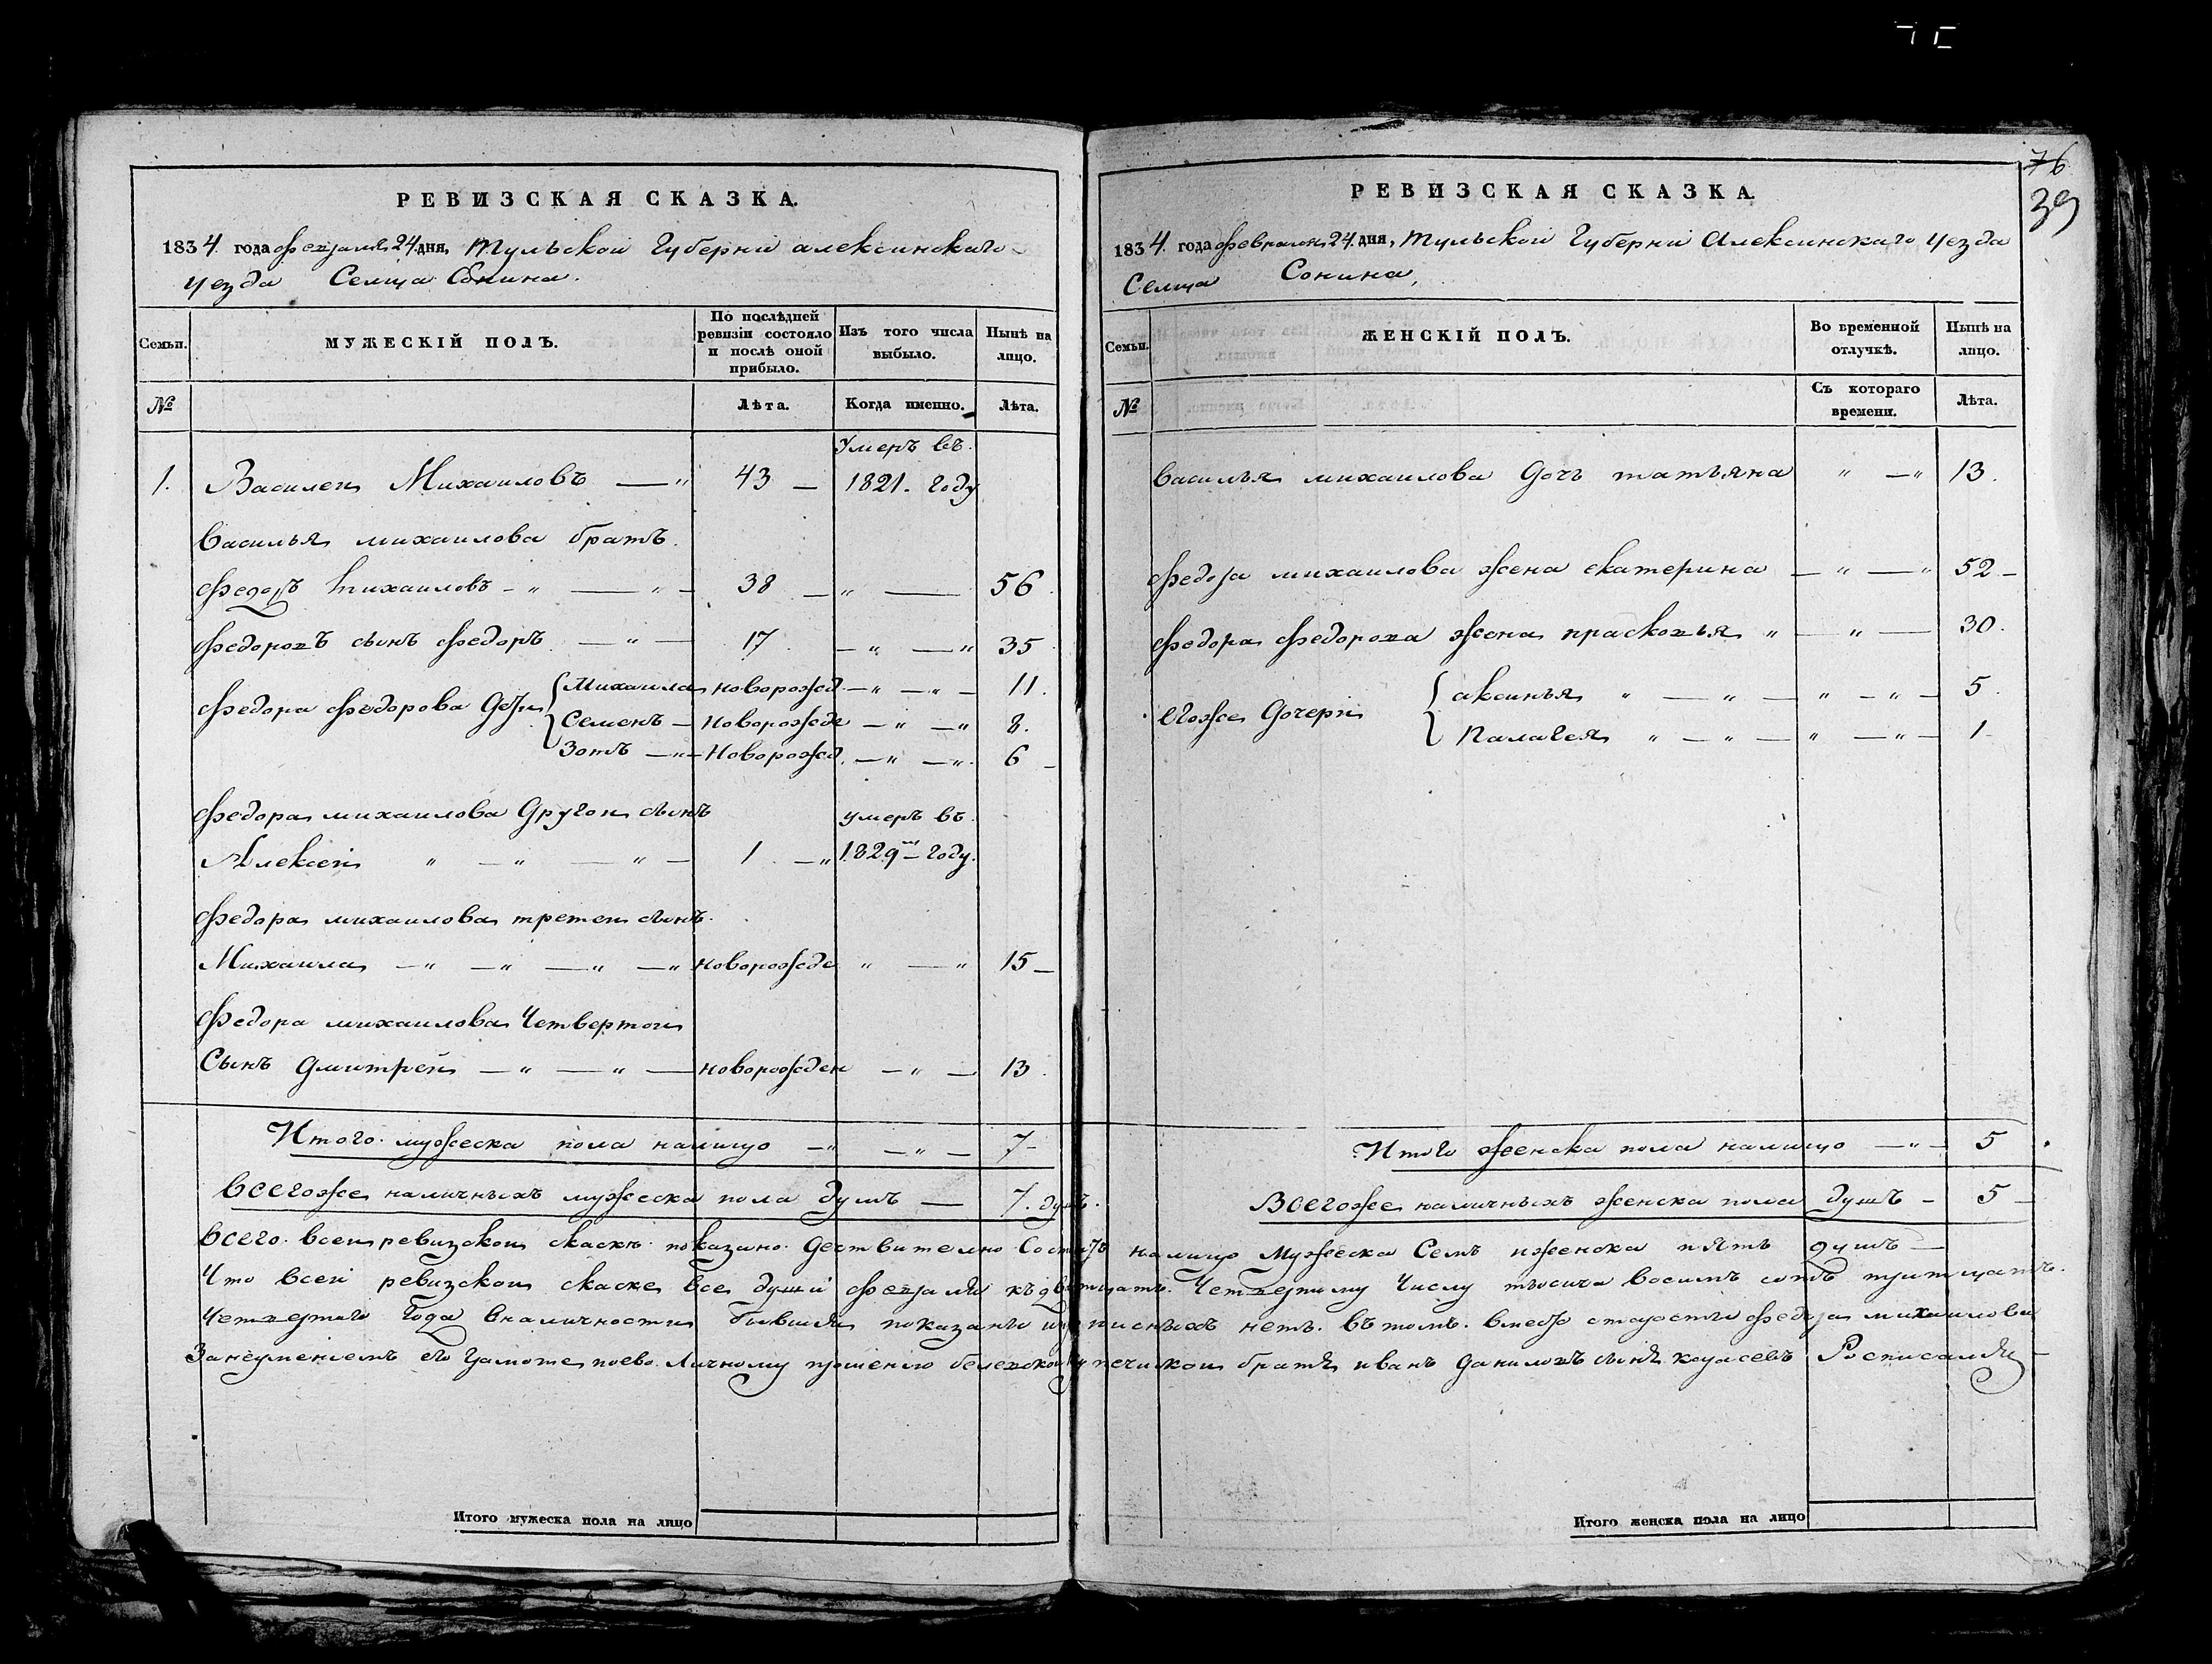 76
39
РЕВИЗСКАЯ СКАЗКА.
1834 года февраля 24 дня, Тульской Губерніи алексинскаго
уезда Селца Сонина.
Семьи.
МУЖЕСКІЙ ПОЛЪ.
По послѣдней ревизіи состояло и послѣ оной прибыло.
Изъ того числа выбыло.
Нынѣ на лицо.
№
Лѣта.
Когда именно.
Лѣта.
Умеръ въ
1. Василеи Михаиловъ 43 1821. году
василья михаилова братъ
федоръ михаиловъ 38 56
федоровъ сынъ федоръ 17 35
федора федорова дети Михаила новорожд 11.
Семенъ новорожде 8.
Зотъ Новорожд 6
федора михаилова другои сынъ умеръ въ
Алексеи 1 1829м году.
федора михаилова третеи сынъ
Михаила новорожде 15
федора михаилова четвертои
Сынъ дмитреи новорожден 13
Итого мужеска пола налицо 7
всегоже наличныхъ мужеска пола душъ 7. душъ.
Итого мужеска пола на лицо
РЕВИЗСКАЯ СКАЗКА.
1834. года февраля 24. дня, Тульской Губерніи Алексинскаго уезда
Селца Сонина,
Семьи.
ЖЕНСКІЙ ПОЛЪ.
Во временной отлучкѣ.
Нынѣ на лицо.
№
Съ котораго времени.
Лѣта.
василья михаилова дочь татьяна 13.
федора михаилова жена екатерина 52
федора федорова жена прасковья 30.
егоже дочери аксинья 5
Палагея 1
Итого женска пола налицо 5
Всегоже наличныхъ женска пола душъ 5
всего всеи ревизскои скаске показано деиствително состоитъ налицо мужеска Семь иженска пять душъ
Что всеи ревизскои скаске все души февраля къ двацать четвертому числу тысяча восимь сотъ тритцать
четвертаго года вналичности бывшия показаны нетъ. въ томъ. вместо старосты федора михаилова
Занеуменіемъ его грамоте поево личному прошению братъ иванъ даниловъ сынъ Росписалъся
Итого женска пола на лицо